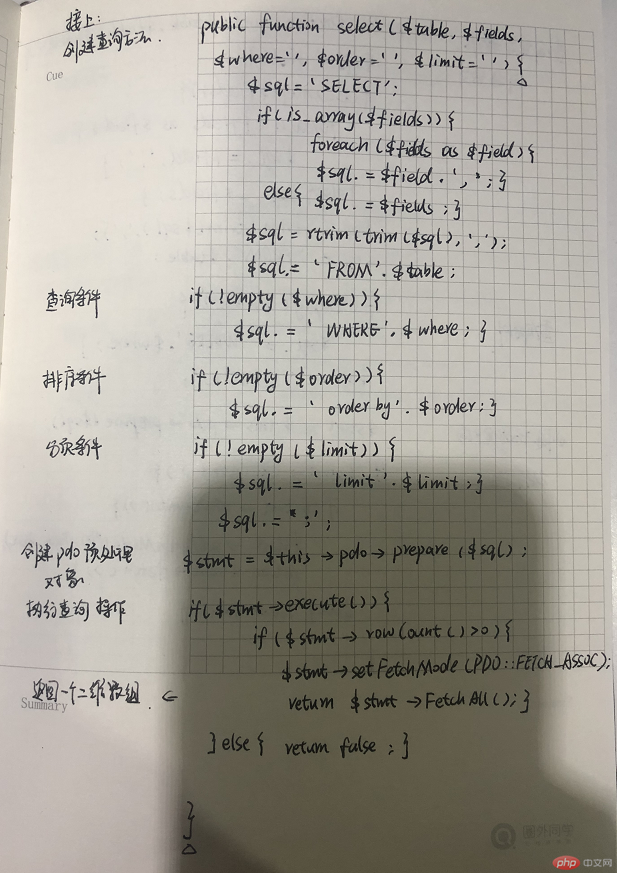 接上:
创建查询方法.
public function select ( $table, $fields,
$where='', $order=' ', $limit=' ' ) {
Cue
$sql = 'SELECT';
if ( is_array($fields)) {
foreach ( $fields as $field) {
$sql. = $field . ',' ; }
else{ $sql. = $fields ; }
$sql = rtrim (trim ($sql), ',');
$sql.= 'FROM'. $table ;
查询条件 if (!empty ($where)) {
$sql. = ' WHERE'. $where ; }
排序条件 if (!empty ($order)){
$sql. = ' order by'. $order; }
分页条件 if (! empty ( $limit)) {
$sql. = ' limit'. $limit ; }
$sql. = ';';
创建pdo 预处理 $stmt = $this → pdo → prepare ($sql) ;
对象
执行查询 操作 if( $stmt → execute ( )) {
if ( $stmt → rowCount ( ) >0) {
$stmt → setFetchMode (PDO::FETCH_ASSOC);
返回一个二维数组. ← return $stmt → FetchAll ( ); }
Summary
} else { return false ; }
}
php 中文网